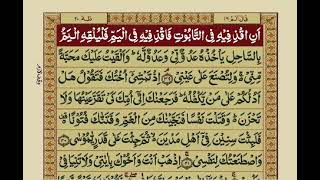 قَالَ اَلَمْ ١٦ طٰهٰ ٢٠
اَنِ اقْذِفِيْهِ فِي التَّابُوْتِ فَاقْذِفِيْهِ فِي الْيَمِّ فَلْيُلْقِهِ الْيَمُّ
بِالسَّاحِلِ يَاْخُذْهُ عَدُوٌّ لِّيْ وَعَدُوٌّ لَّهٗ ؕ وَاَلْقَيْتُ عَلَيْكَ مَحَبَّةً
مِّنِّيْ ۚ وَلِتُصْنَعَ عَلٰى عَيْنِيْ ۘ ﴿۳۹﴾ اِذْ تَمْشِيْٓ اُخْتُكَ فَتَقُوْلُ هَلْ
اَدُلُّكُمْ عَلٰى مَنْ يَّكْفُلُهٗ ؕ فَرَجَعْنٰكَ اِلٰٓى اُمِّكَ كَيْ تَقَرَّ عَيْنُهَا وَلَا
تَحْزَنَ ؕ وَقَتَلْتَ نَفْسًا فَنَجَّيْنٰكَ مِنَ الْغَمِّ وَفَتَنّٰكَ فُتُوْنًا ۚ
فَلَبِثْتَ سِنِيْنَ فِيْٓ اَهْلِ مَدْيَنَ ۙ ثُمَّ جِئْتَ عَلٰى قَدَرٍ يّٰمُوْسٰى ﴿۴۰﴾
وَاصْطَنَعْتُكَ لِنَفْسِيْ ﴿۴۱﴾ اِذْهَبْ اَنْتَ وَاَخُوْكَ بِاٰيٰتِيْ وَلَا تَنِيَا